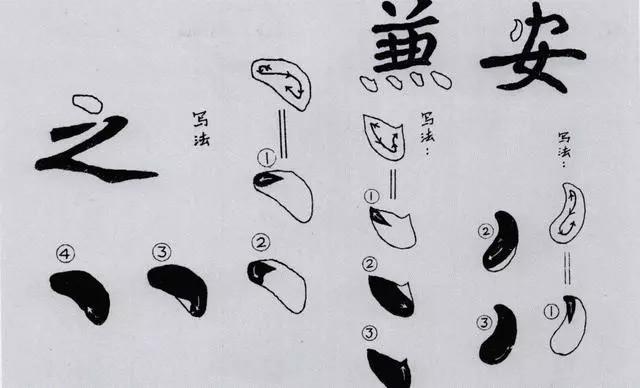 安
写法：
①
②
③
兼
写法：
①
②
③
之
写法
①
②
③
④